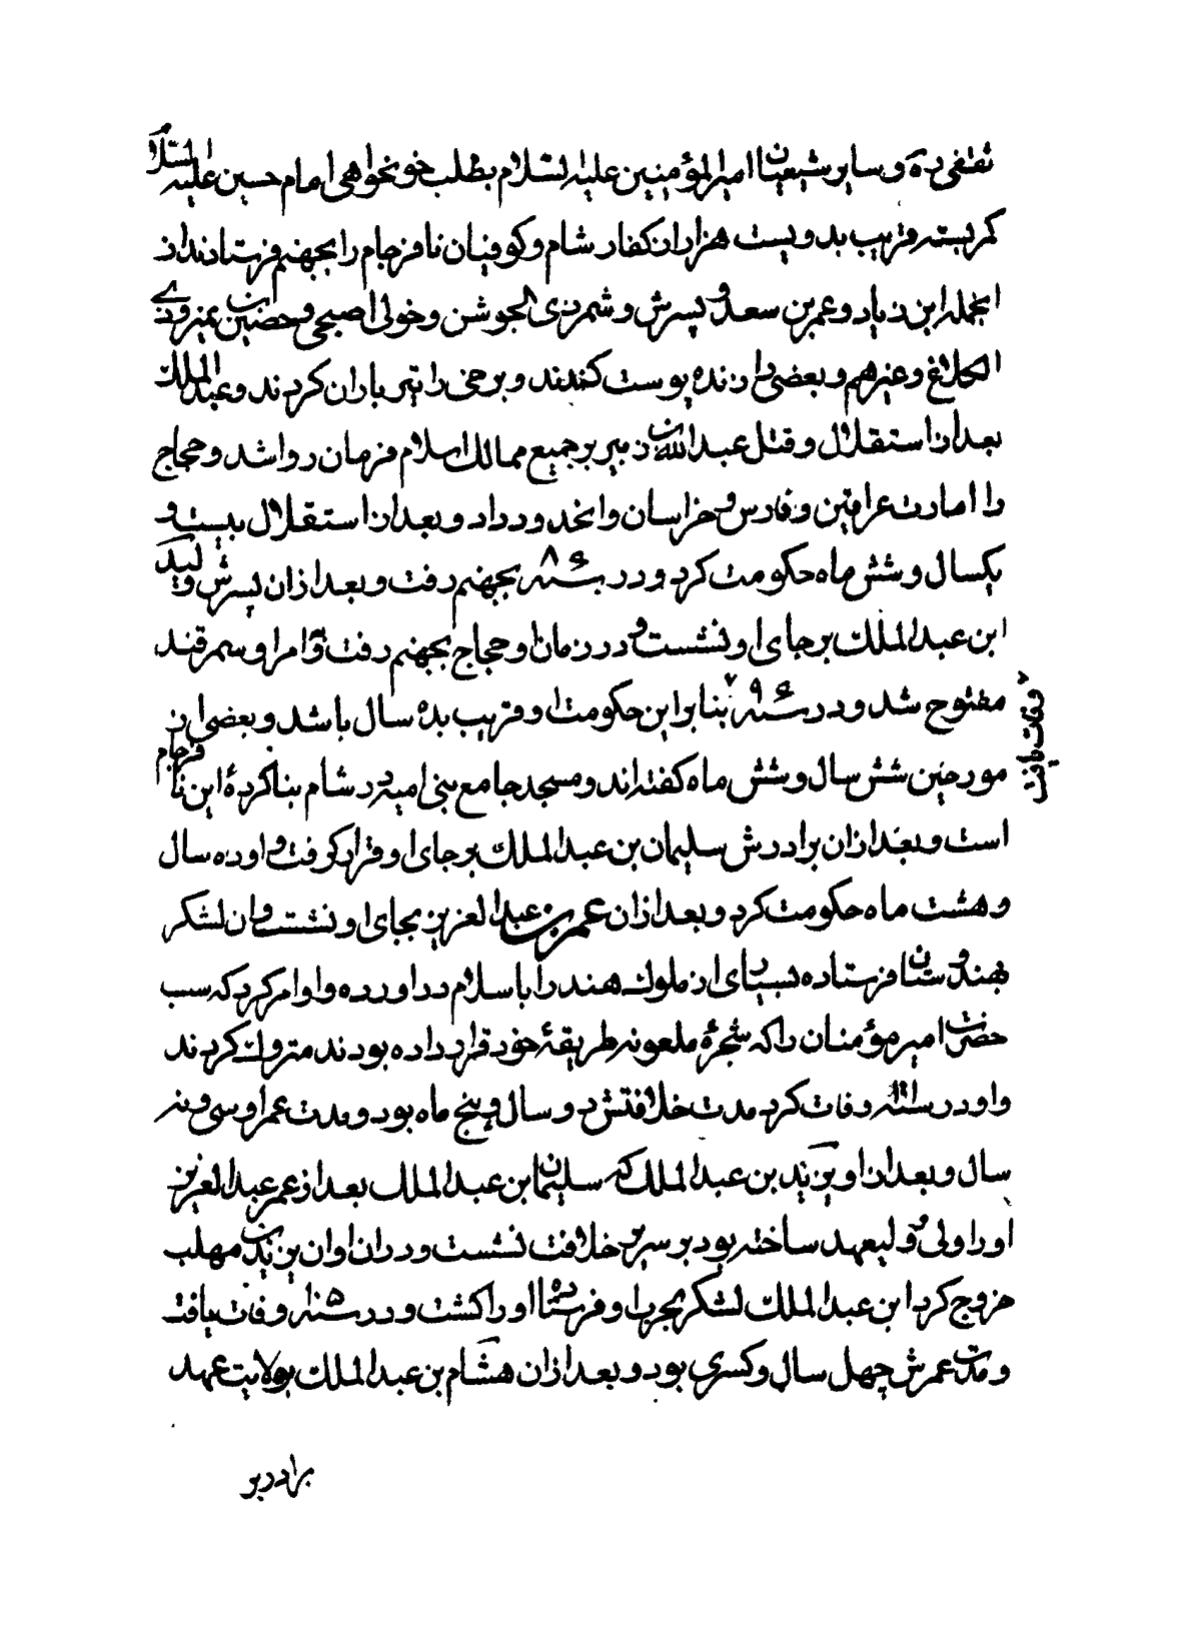 ثقفی ره و سایر شیعیان امیرالمؤمنین علیه السلام بطلب خونخواهی امام حسین علیه السلام
کمر بسته قریب بدویست هزار ان کفار شام و کوفیان نافرجام را بجهنم فرستادند از
انجمله ابن زیاد و عمر بن سعد و پسرش و شمر ذی الجوشن و خولی اصبحی و حضین بن نمیر و ذی
الکلاغ و غیرهم و بعضی را زنده پوست کندند و برخی را تیر باران کردند و عبدالملک
بعد از استقلال و قتل عبدالله بن زبیر بر جمیع ممالک اسلام فرمان روا شد و حجاج
را امارت عراقین و فارس و خراسان و انحدود داد و بعد از استقلال بیست و
یکسال و شش ماه حکومت کرد و در سنه ۸۶ بجهنم رفت و بعد از ان پسرش ولید
ابن عبدالملک بر جای او نشست و در زمان او حجاج بجهنم رفت و امرا و سمرقند
مفتوح شد و در سنه ۹۶ بنابراین حکومت او قریب بده سال باشد و بعضی از
وفات یافت
مورخین شش سال و شش ماه گفته اند و مسجد جامع بنی امیه در شام بنا کردۀ این نافرجام
است و بعد ازان برادرش سلیمان بن عبدالملک بر جای او قرار گرفت و او ده سال
و هشت ماه حکومت کرد و بعد ازان عمر بن عبدالعزیز بجای او نشست و ان لشکر
بهندوستان فرستاده بسیاری از ملوک هند را باسلام دراورده و او امر کرد که سب
حضرت امیر مؤمنان را که شجرۀ ملعونه طریقۀ خود قرار داده بودند متروک کردند
و او در سنه ۱۰۱ وفات کرد مدت خلافتش دو سال و پنج ماه بود و مدت عمر او سی و نه
سال و بعد از او یزید بن عبدالملک که سلیمان بن عبدالملک بعد از عمر عبدالعزیز
او را ولی و لیعهد ساخته بود بر سریر خلافت نشست و در ان اوان یزید بن مهلب
خروج کرد ابن عبدالملک لشکر بحرب او فرستاد او را کشت و در سنه ۱۰۵ وفات یافت
و مدت عمرش چهل سال و کسری بود و بعد ازان هشام بن عبدالملک بولایت عهد
برادر بر